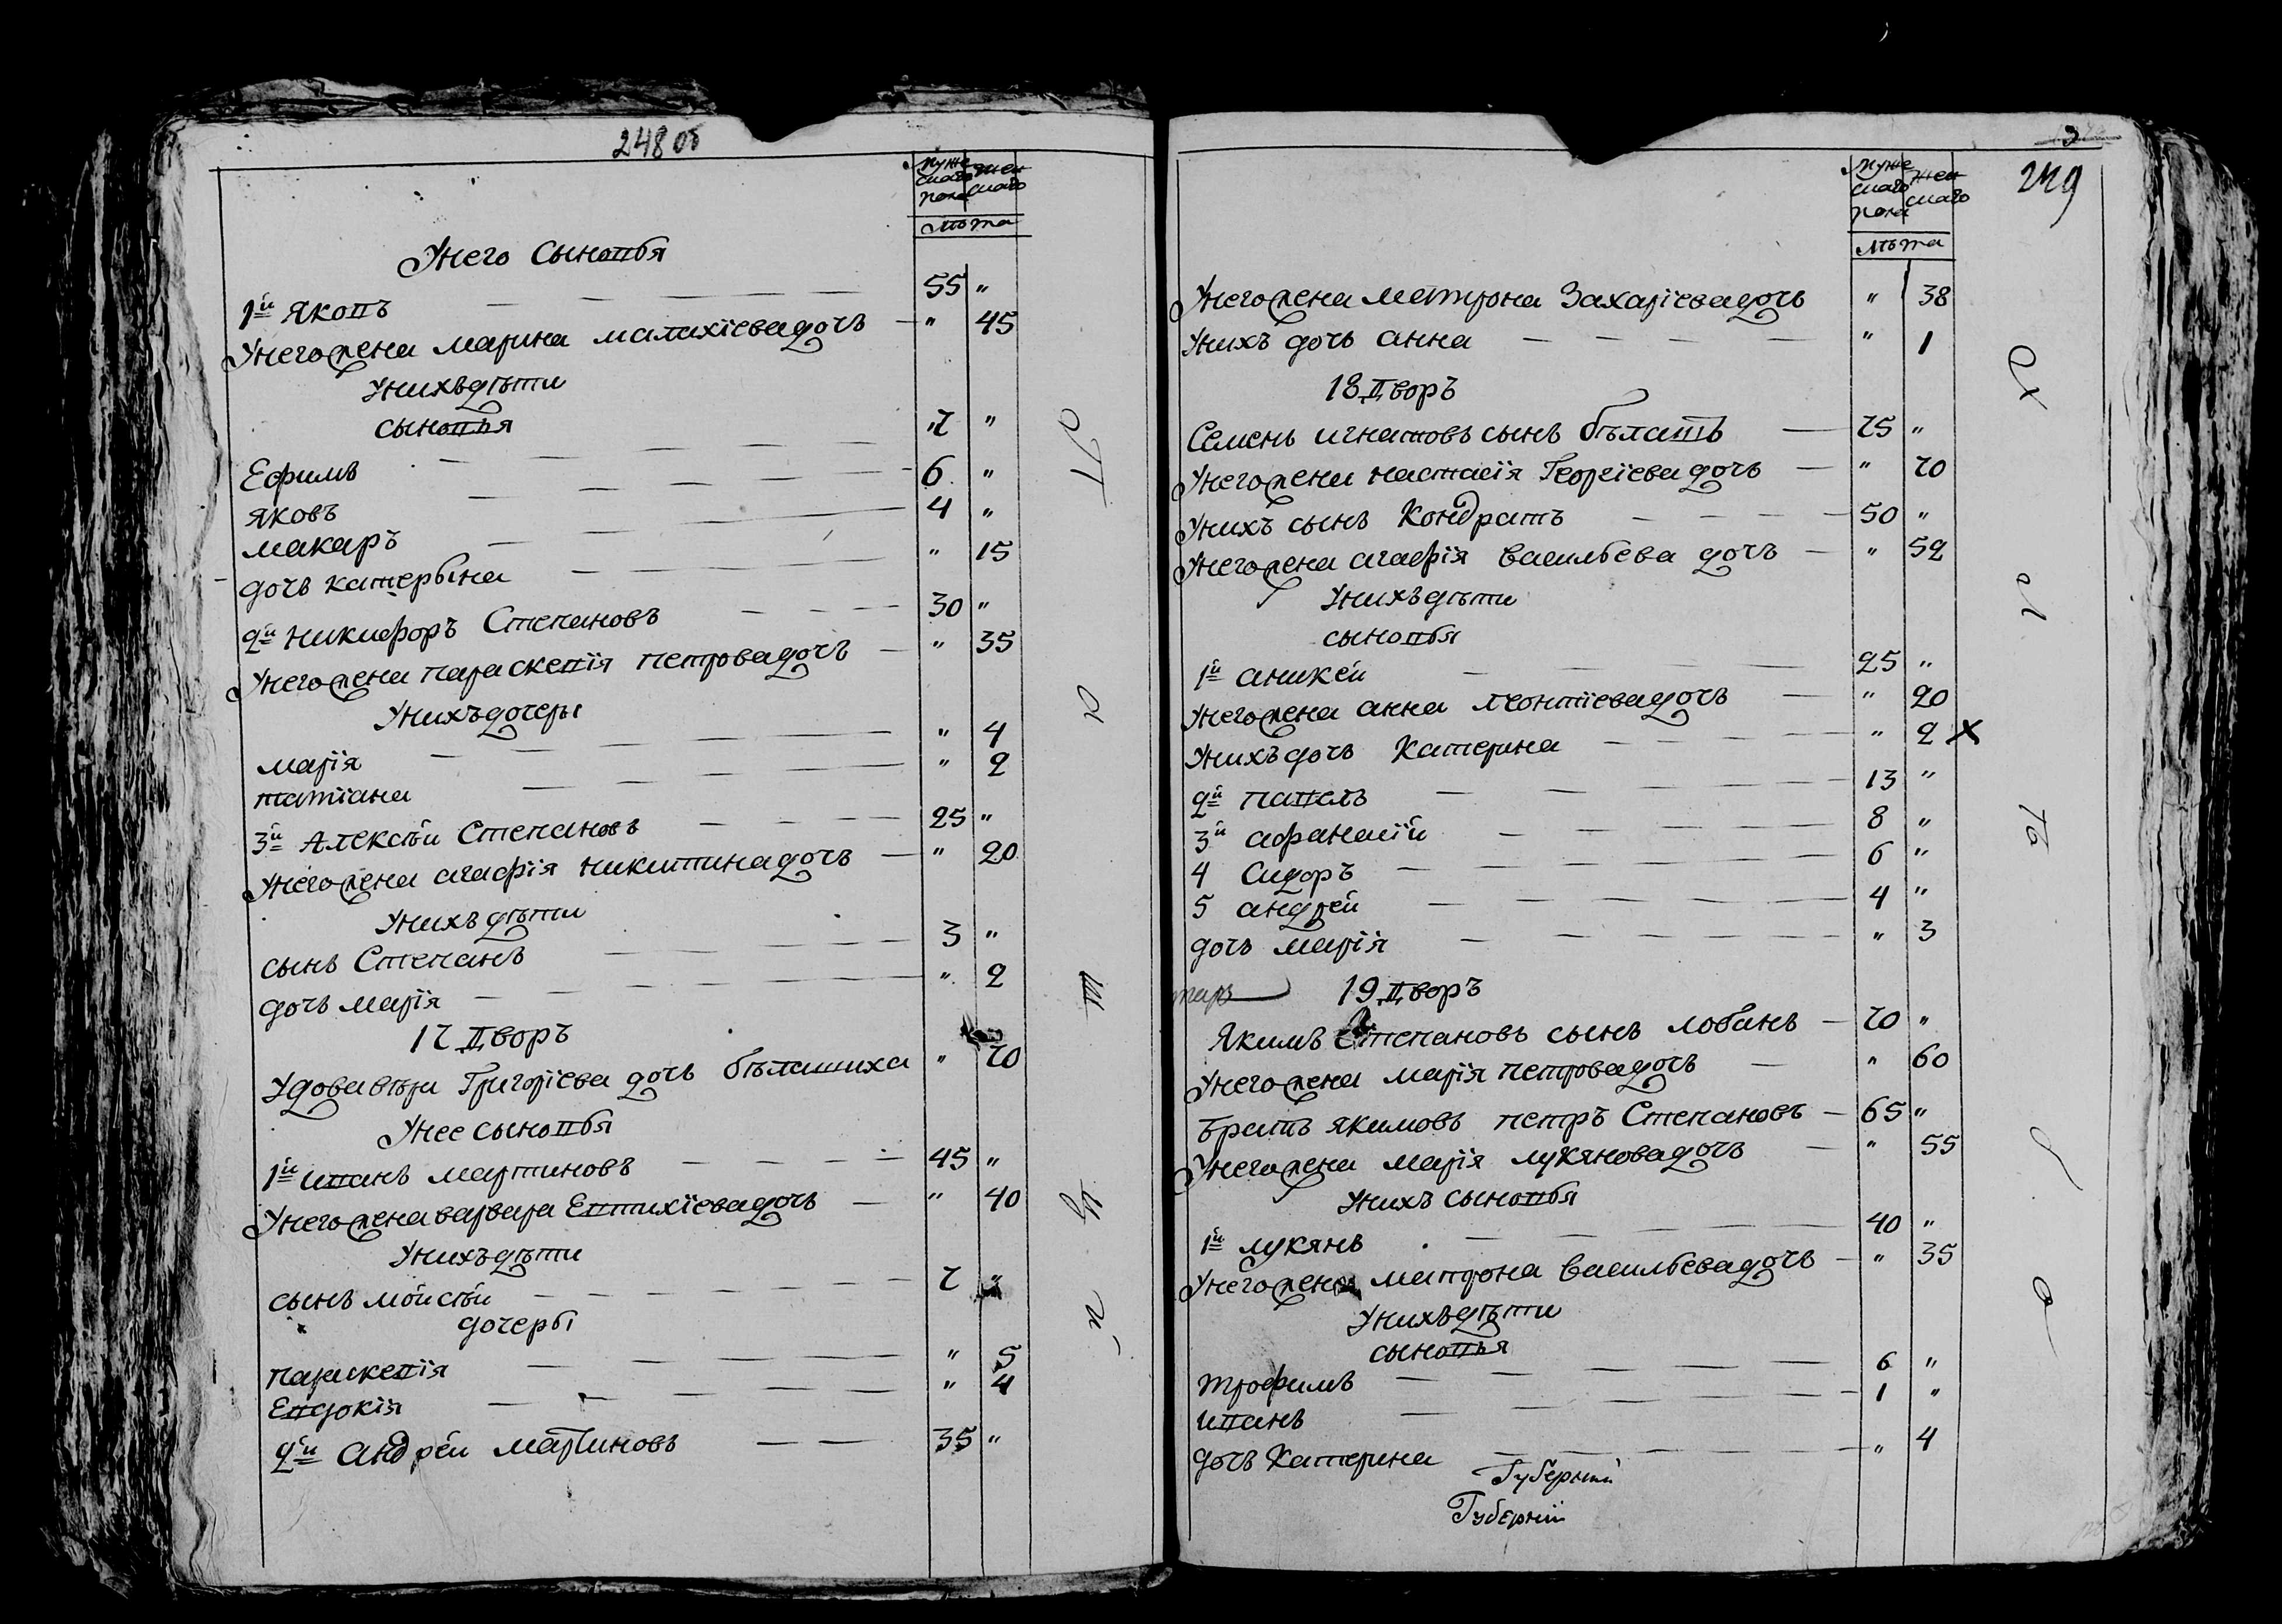 248 об
муже
скаго
пола
жен
скаго
лѣта
Унего Сыновья
1й Яковъ — — — — — 55 "
Унего жена марина малахіева дочь — " 45
Унихъ дѣти
сыновья
Ефимъ — — — — — 7 "
яковъ — — — — — 6 "
макаръ — — — — — 4 "
дочь катерына — — — — " 15
2й никифоръ Степановъ — — — 30 "
Унего жена параскевія петрова дочь — " 35
Унихъ дочеры
марія — — — — — " 4
татіана — — — — " 2
3й Алексѣй Степановъ — — — 25 "
Унего жена агафія никитина дочь — " 20
Унихъ дѣти
сынъ Степанъ — — — — 3 "
дочь марія — — — — — " 2
17 Дворъ
Удова вѣра Григоріева дочь бѣлашиха " 70
Унее сыновья
1й иванъ мартиновъ — — — 45 "
Унего жена варвара Евтихіева дочь — " 40
Унихъ дѣти
сынъ мойсѣй — — — — — 7 "
дочеры
параскевія — — — — " 5
Евдокія — — — — — " 4
2й андрей мартиновъ — — 35 "
249
муже
скаго
пола
жен
скаго
лѣта
Унего жена матрона Захаріева дочь " 38
Унихъ дочь анна — — — — " 1
18 Дворъ
Семенъ игнатовъ сынъ бѣлашъ — 75 "
Унего жена настасія Георгіева дочь — " 70
Унихъ сынъ Кондратъ — — — 50 "
Унего жена агафія васильева дочь — " 52
Унихъ дѣти
сыновья
1й аникей — — — — 25 "
Унего жена анна леонтіева дочь — " 20
Унихъ дочь Катерина — — — " 2 х
2й павелъ — — — — — 13 "
3й афанасій — — — — 8 "
4 Сидоръ — — — — — 6 "
5 андрей — — — — — 4 "
дочь марія — — — — — " 3
19 Дворъ
Якимъ Степановъ сынъ лобань — 70 "
Унего жена марія петрова дочь — " 60
братъ якимовъ петръ Степановъ — 65 "
Унего жена марія лукянова дочь — " 55
Унихъ сыновья
1й лукянъ — — — — 40 "
Унего жена матрона васильева дочь — " 35
Унихъ дѣти
сыновья
трофимъ — — — — — 6 "
иванъ — — — — — 1 "
дочь Катерина — — — — " 4
Губерніи
Губерніи